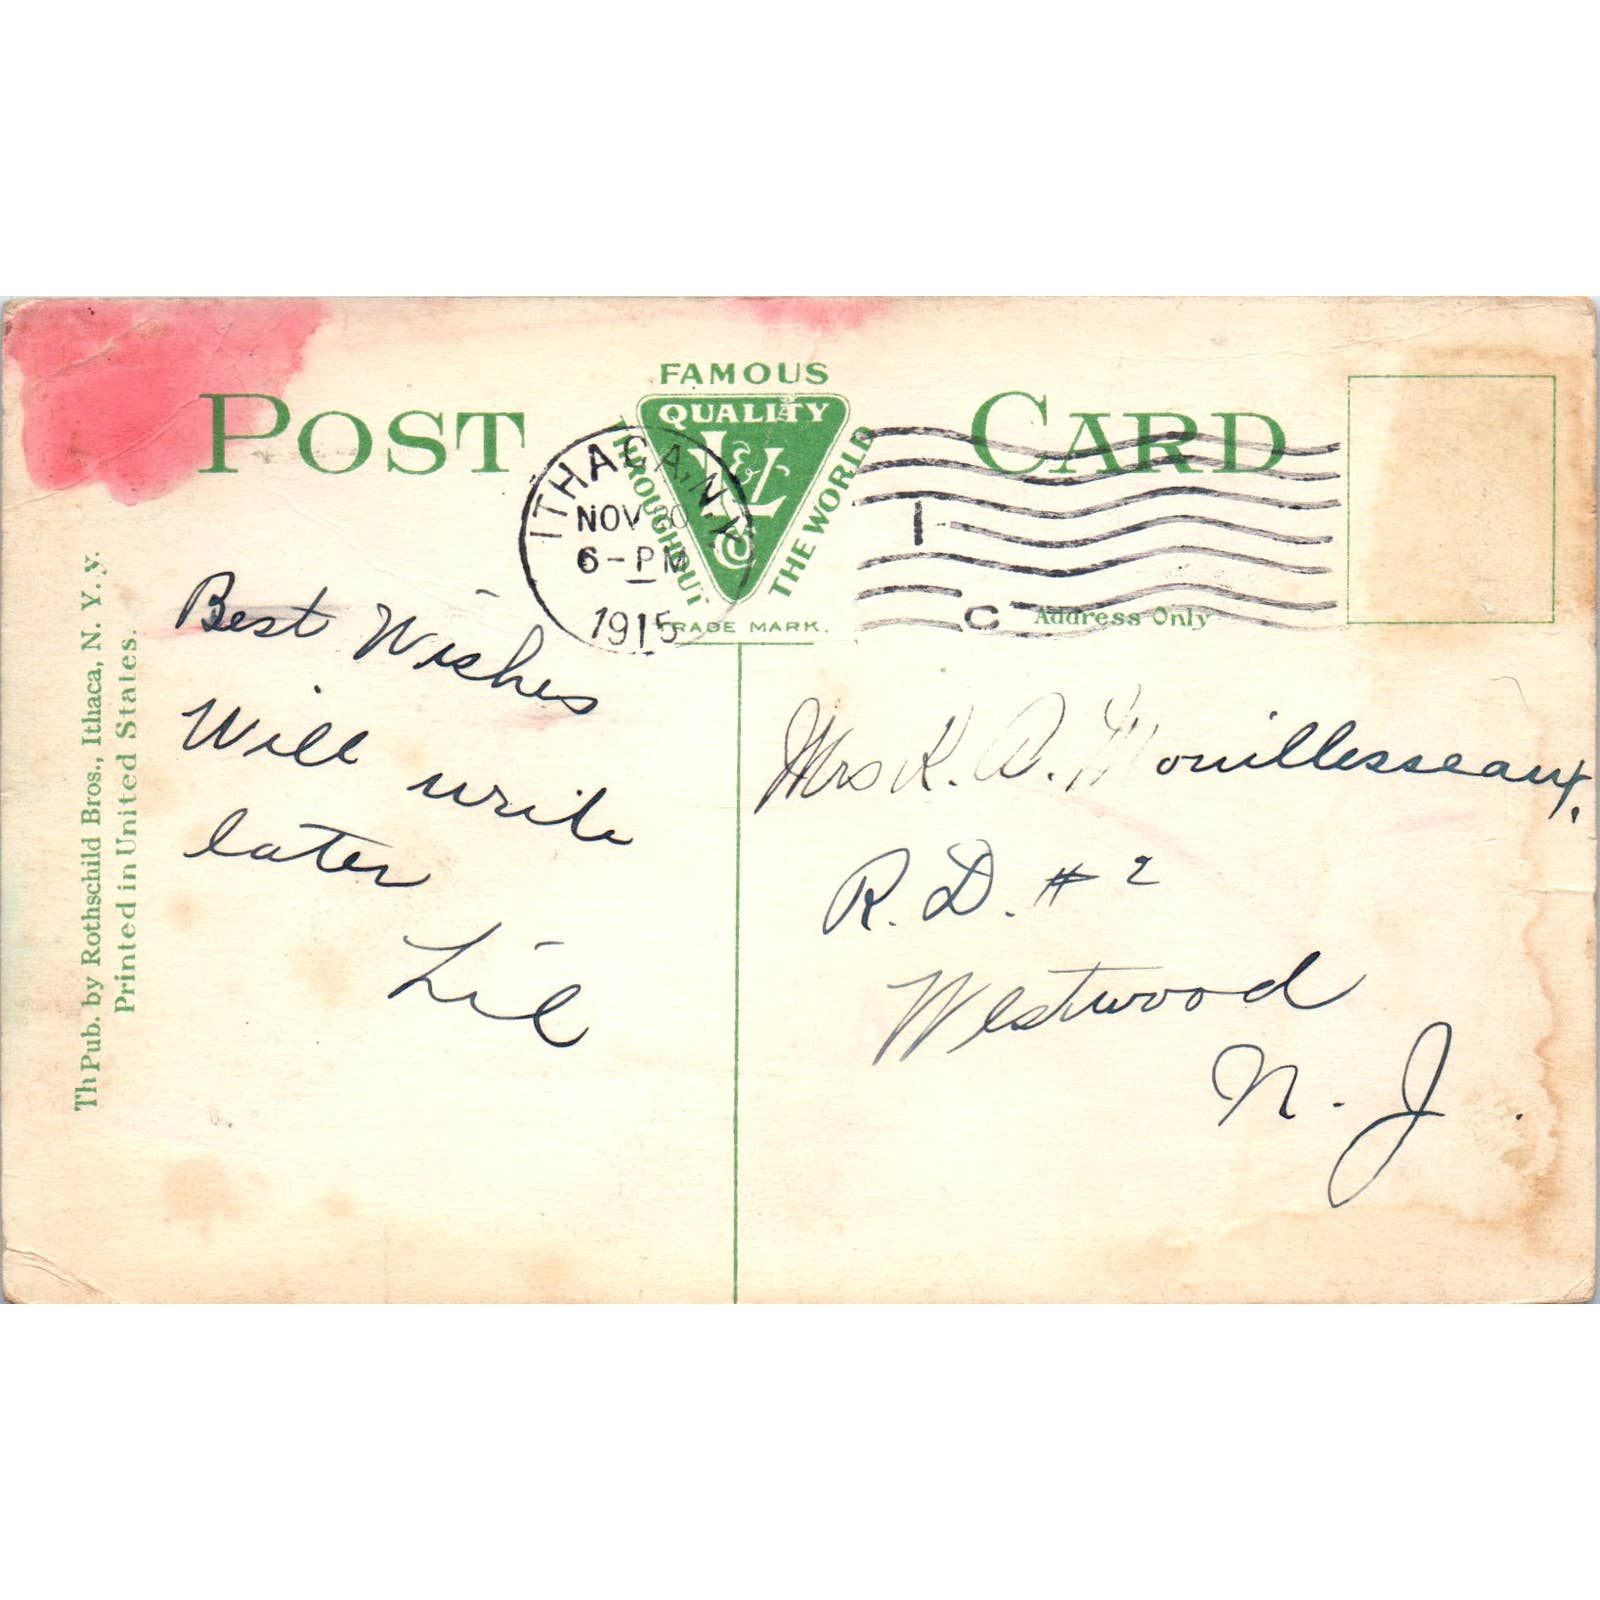 POST CARD
FAMOUS
QUALITY
THROUGHOUT
THE WORLD
L&L
Co
TRADE MARK.
ITHACA, N.Y.
NOV
6-PM
1915
1
C
Address Only
Best Wishes
Will write
later
Lil
Mrs K. A. Mouillesseaux.
R. D. # 2
Westwood
N. J.
Th Pub. by Rothschild Bros., Ithaca, N. Y. y.
Printed in United States.